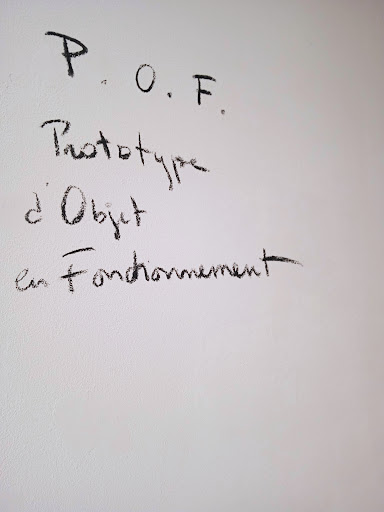 P.O.F.
Prototype
d'Objet
en Fonctionnement